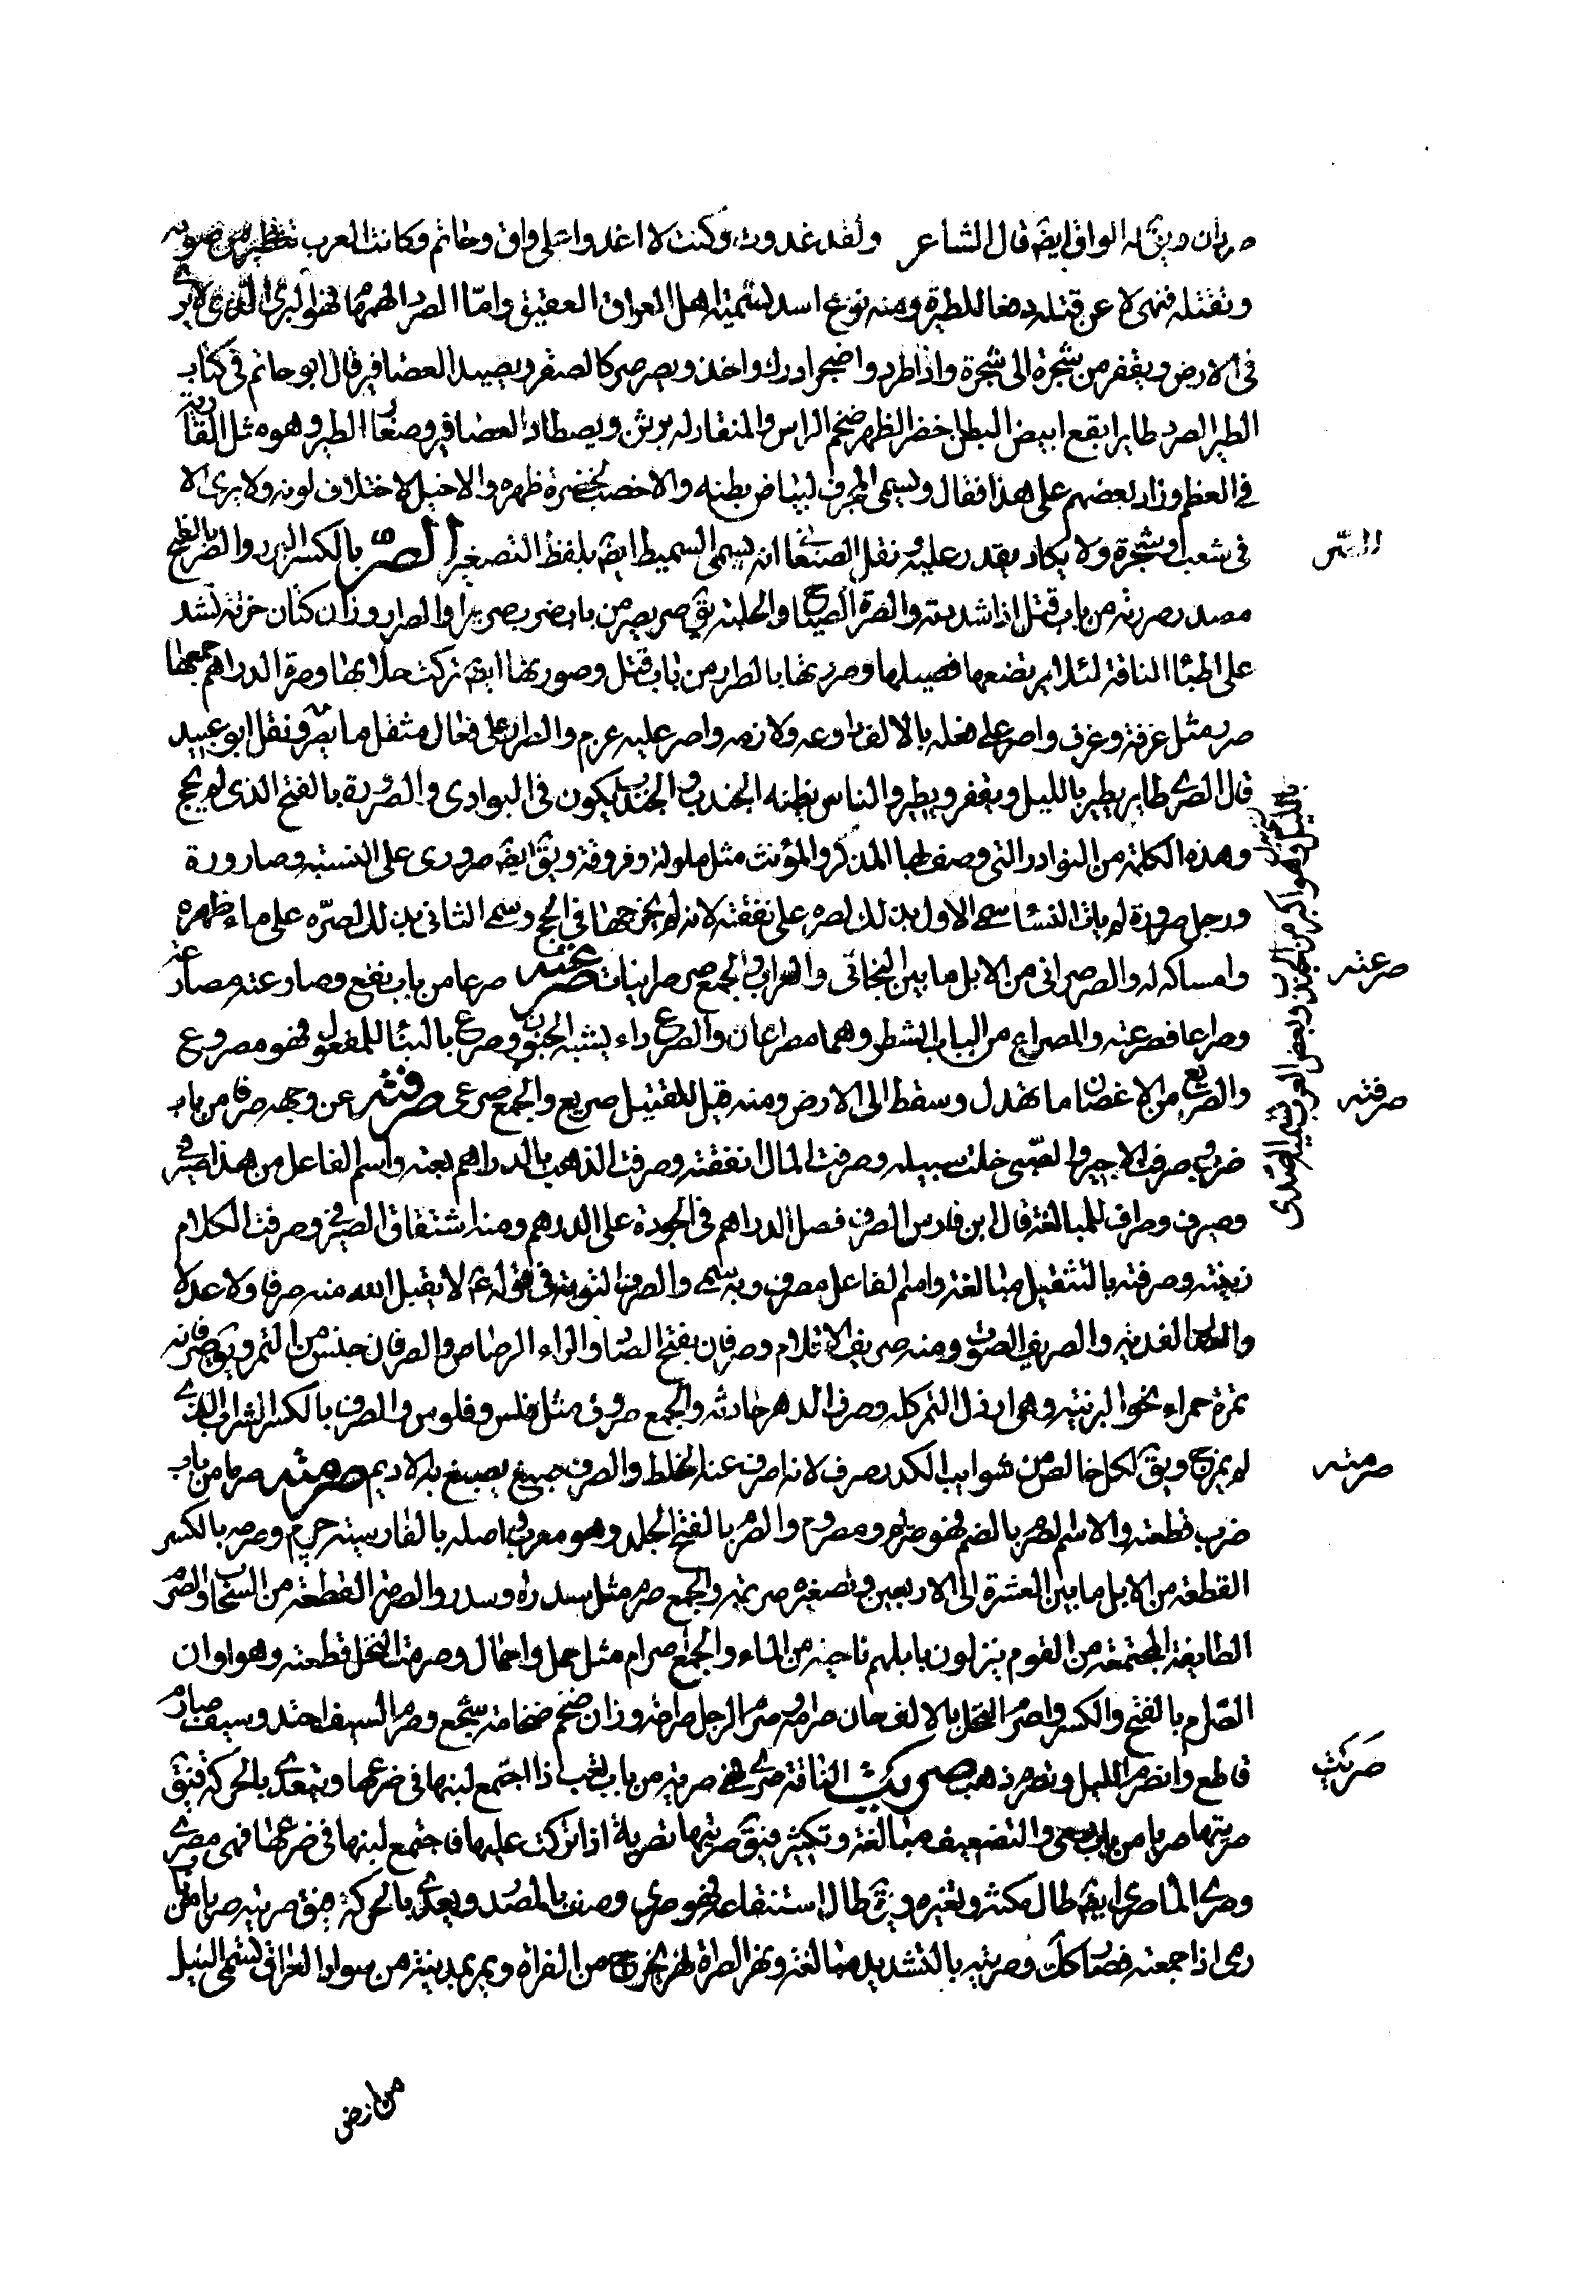 صردان ويقٓ له الواق ايضٓ قال الشاعر ولقد غدوت وكنت لا اغدوا على واق وحاتم وكانت العرب تتطير من صوته
وتقتله فنهى لا عن قتله دفعا للطيرة ومنه نوع اسد تسميه اهل العراق العقيق وامّا الصرد الهمهام فهو البرى الذى لا يرى
فى الارض ويقفز من شجرة الى شجرة واذا طرد واضجر ادرك واخذ ويصرصر كالصقر ويصيد العصافير قال ابو حاتم فى كتاب
الطير الصرد طاير ابقع ابيض البطن اخضر الظهر ضخم الراس والمنقار له برثن ويصطاد العصافير وصغار الطير وهو مثل القارية
فى العظم وزاد بعضهم على هذا فقال ويسمى المجرف لبياض بطنه والاخطب لخضرة ظهره والاخيل لاختلاف لونه ولا يرى الا
فى شعب او شجرة ولا يكاد يقدر عليه ونقل الصنعانى انه يسمى السميط ايضٓ بلفظ التصغير الصرّ بالكسر البرد والصر بالفتح
مصدر صررته من باب قتل اذا شددته والصرة الصياح والجلبة يقٓ صر يصر من باب ضرب صريرا والصرار وزان كتاب خرقة تشد
على اطباء الناقة لئلا يرتضعها فصيلها وصررتها بالصرار من باب قتل وصورتها ايضٓ تركت حلابها وصرة الدراهم جمعها
صرر مثل غرفة وغرف واصر على فعله بالالف داوم ولازمه واصر عليه عزم والصرار على فعال مثقل ما يصر ونقل ابو عبيد
قال الصرى طاير يطير بالليل ويقفز ويطير والناس يظنه الجندب والجندب يكون فى البوادى والصرورة بالفتح الذى لم يحج
وهذه الكلمة من النوادر التى وصف بها المذكر والمؤنث مثل ملولة وفروقة ويقٓ ايضٓ صرورى على النسبة وصارورة
ورجل صرورة لم يات النساء سمى الاول بذلك لصره على نفقته لانه لم يخرجها فى الحج وسمى الثانى بذلك لصره على ماء ظهره
وامساكه له والصرصرانى من الابل ما بين البخاتى والعراب والجمع صرصرانيات صرعته صرعا من باب نفع وصارعته مصارعة
وصراعا فصرعته والمصراع من الباب الشطر وهما مصراعان والصرع داء يشبه الجنون وصرع بالبناء للمفعول فهو مصروع
والصريع من الاغصان ما تهدل وسقط الى الارض ومنه قيل للقتيل صريع والجمع صرعى صرفته عن وجهه صرفا من باب
ضرب وصرفت الاجير والصبى خليت سبيله وصرفت المال انفقته وصرفت الذهب بالدراهم بعته واسم الفاعل من هذا صيرفى
وصيرف وصراف للمبالغة قال ابن فارس الصرف فصل الدراهم فى الجودة على الدرهم ومنه اشتقاق الصيرفى وصرفت الكلام
زينته وصرفته بالتثقيل مبالغة واسم الفاعل مصرف وبه سمى والصرف التوبة فى قوله عم لا يقبل الله منه صرفا ولا عدلا
والعدل الفدية والصريف الصوت ومنه صريف الاقلام وصرفان بفتح الصاد والراء الرصاص والصرفان جنس من التمر ويقٓ صرفانه
تمرة حمراء نحو البرنيه وهى ارذل التمر كله وصرف الدهر حادثه والجمع صروف مثل فلس وفلوس والصرف بالكسر الشراب الذى
لم يمزج ويقٓ لكل خالص من شوايب الكدر صرف لانه صرف عنه الخلط والصرف صبغ يصبغ به الاديم صرمته صرما من باب
ضرب قطعته والاسم الصرم بالضم فهو صريم ومصروم والصرم بالفتح الجلد وهو معرب واصله بالفارسيه جرم وصرمه بالكسر
القطعة من الابل ما بين العشرة الى الاربعين وتصغيره صريمة والجمع صرم مثل سدره وسدر والصرمة القطعة من السحاب والصرم
الطايفة المجتمعة من القوم ينزلون بابلهم ناحية من الماء والجمع اصرام مثل حمل واحمال وصرمت النخل قطعته وهو اوان
الصّرام بالفتح والكسر واصرم النخل بالالف حان صرامه وصرم الرجل صرامة وزان ضخم ضخامة شجع وصرم السيف احتد وسيف صارم
قاطع وانصرم الليل وتصرم ذهب صريت الناقة صرى فهى صرية من باب تعب اذا اجتمع لبنها فى ضرعها ويتعدى بالحركة فيقٓ
صريتها صريا من باب رمى والتضعيف مبالغة وتكثير فيقٓ صريتها تصرية اذا تركت حلبها فاجتمع لبنها فى ضرعها فهى مصراة
وصرى الماء صرى ايضٓ طال مكثه وتغيره ويقٓ طال استنقاعه فهو صرى وصف بالمصدر ويعدى بالحركة فيقٓ صريته صريا من باب
رمى اذا جمعته فصار كك وصريته بالتشديد مبالغة ونهر الصراة نهر يخرج من الفراة ويمر بمدينة من سواد العراق تسمى النيل
من ارض
الصّر
صرعته
صرفته
صرمته
صريت
بالليل وهو اكبر من الجندب وبعض العرب تسميه الصدى